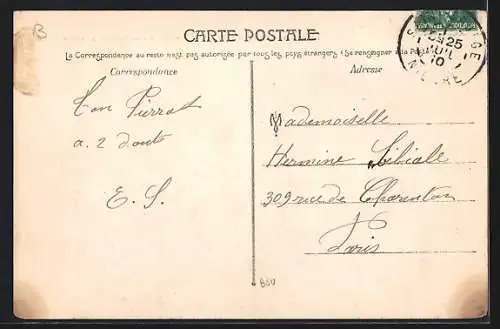 B
CARTE POSTALE
La Correspondance au recto n'est pas autorisée par tous les pays étrangers (Se renseigner à la
Correspondance
Adresse
Ton Pierrot
a. 2 dents
E. S.
Mademoiselle
Hermine Sibiale
309 rue de Charenton
Paris
BSU
25
10
NIEVRE